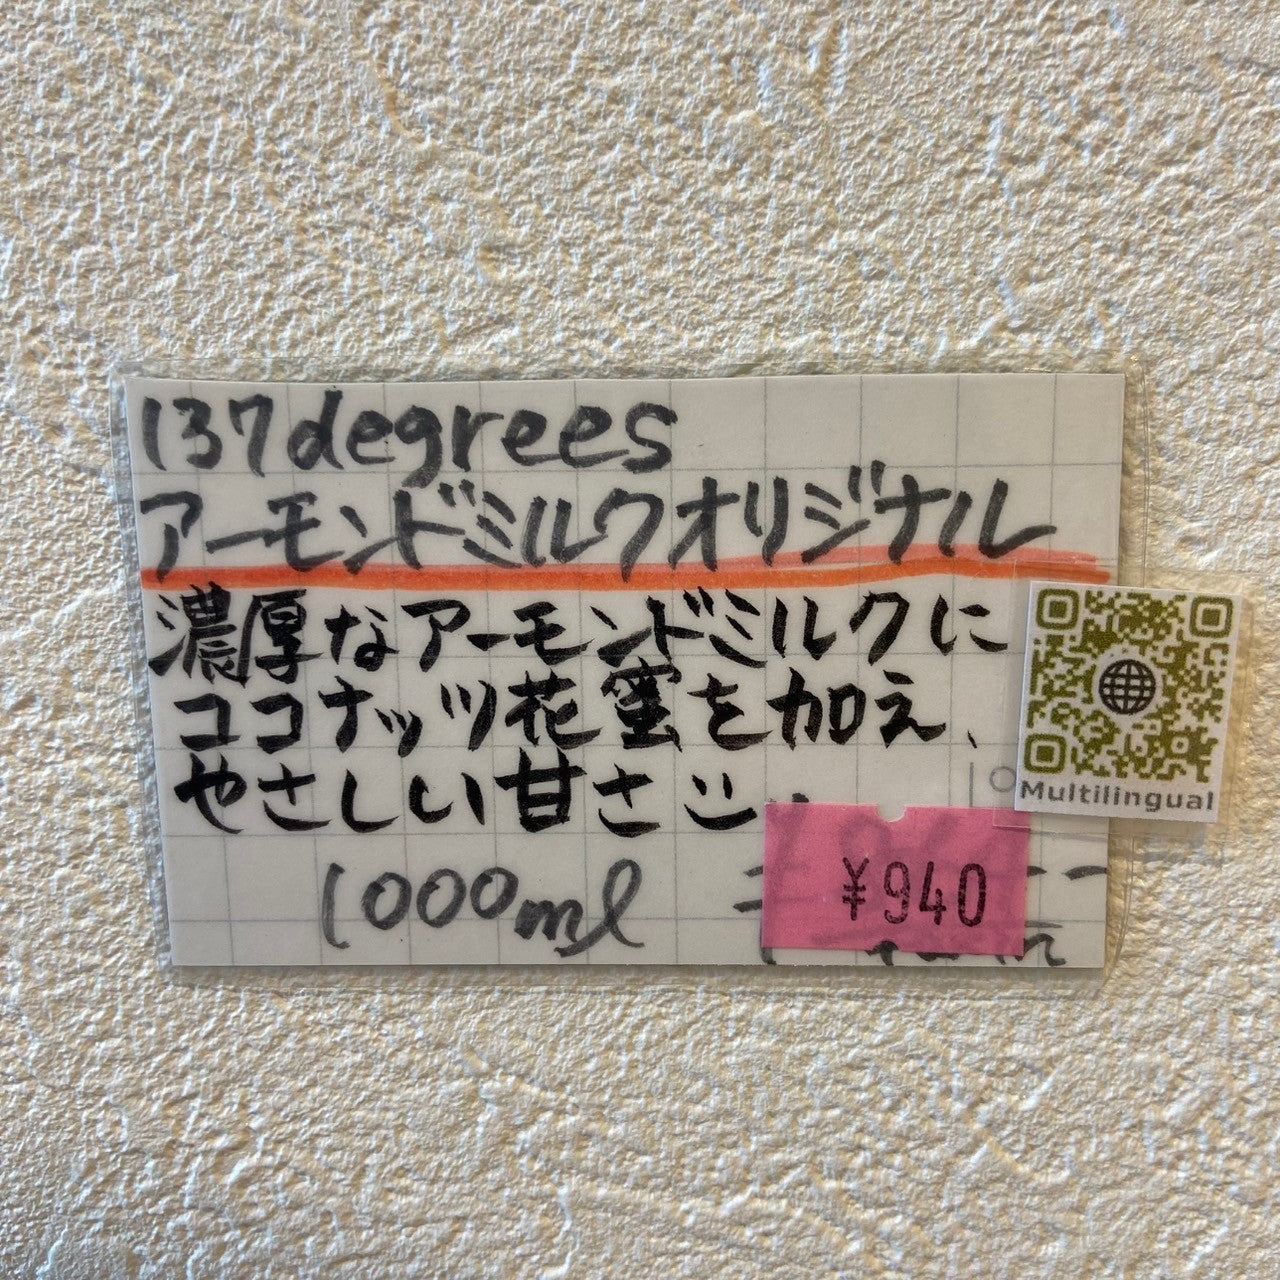 137degrees
アーモンドミルクオリジナル
濃厚なアーモンドミルクに
ココナッツ花蜜を加え、
やさしい甘さに
1000ml
¥940
Multilingual